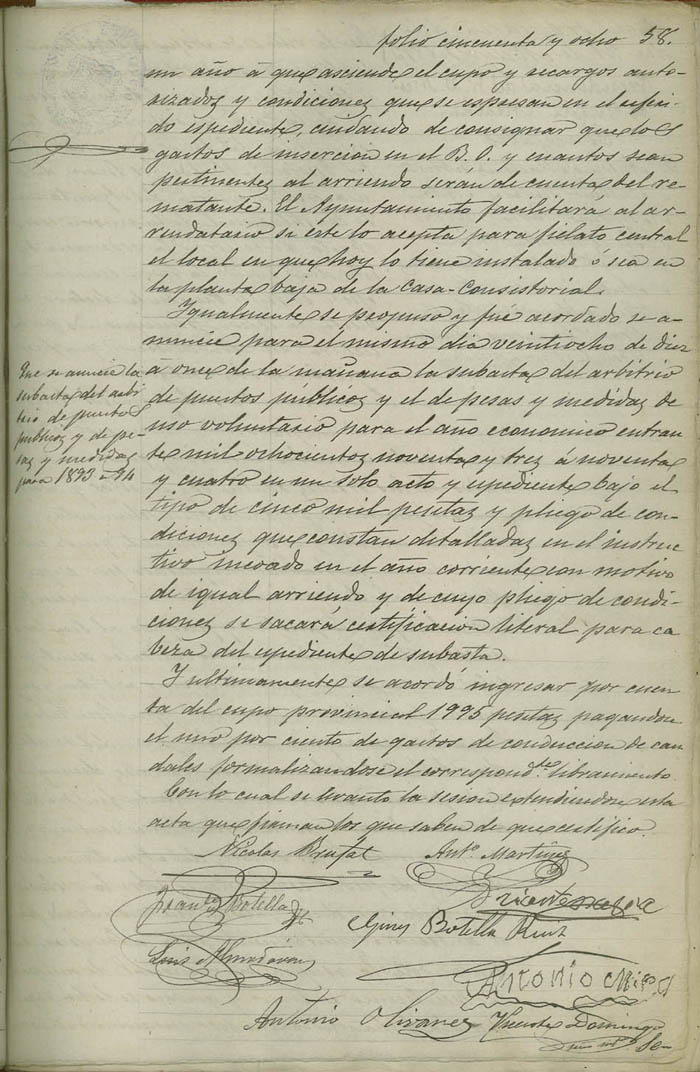 folio cincuenta y ocho 58.
un año á que asciende el cupo y recargos auto-
rizados y condiciones que se espresan en el referi-
do espediente, cuidando de consignar que los
gastos de insercion en el B. O. y cuantos sean
pertinentes al arriendo serán de cuenta del re-
matante. El Ayuntamiento facilitará al ar-
rendatario si este lo acepta para fielato central
el local en que hoy lo tiene instalado ó sea en
la planta baja de la Casa-Consistorial.
Igualmente se propuso y fué acordado se a-
nuncie para el mismo dia veintiocho de diez
á once de la mañana la subasta del arbitrio
de puestos públicos y el de pesas y medidas de
uso voluntario para el año economico entran-
te mil ochocientos noventa y tres á noventa
y cuatro en un solo acto y espediente bajo el
tipo de cinco mil pesetas y pliego de con-
diciones que constan detalladas en el instruc
tivo incoado en el año corriente con motivo
de igual arriendo y de cuyo pliego de condi-
ciones se sacará certificacion literal para ca
beza del espediente de subasta.
Y ultimamente se acordó ingresar por cuen
ta del cupo provincial 1995 pesetas pagandose
el uno por ciento de gastos de conduccion de cau
dales formalizandose el correspond.te libramiento
Con lo cual se levantó la sesion estendiendose esta
acta que firman los que saben de que certifico.
Que se anuncie la
subasta del arbi
trio de puestos
publicos y de pe-
sas y medidas
para 1893 á 94
Nicolas Brufal
Ant.o Martinez
Juan Botella
Vicente
Gines Botella Ruiz
Luis Almodóvar
Antonio
Antonio Olivares
Vicente Domingo